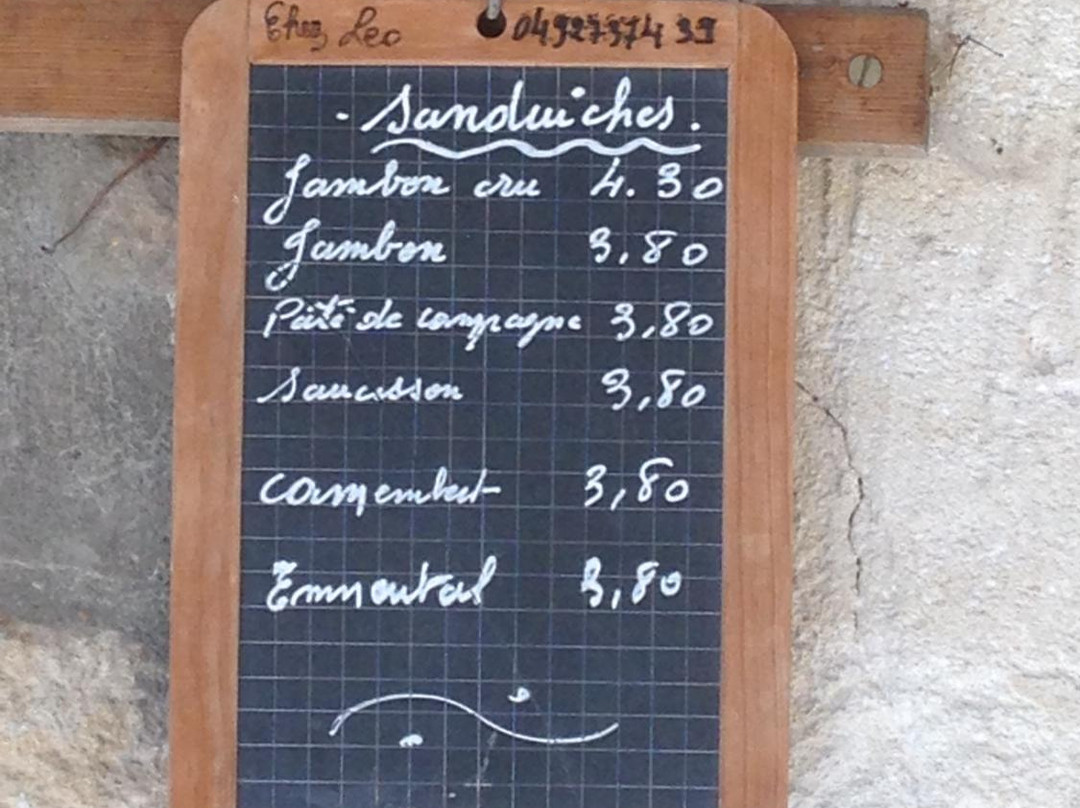 Chez Leo 0492737439
- Sandwiches.
Jambon cru 4.30
Jambon 3,80
Pâté de campagne 3,80
Saucisson 3,80
Camembert 3,80
Emmental 3,80